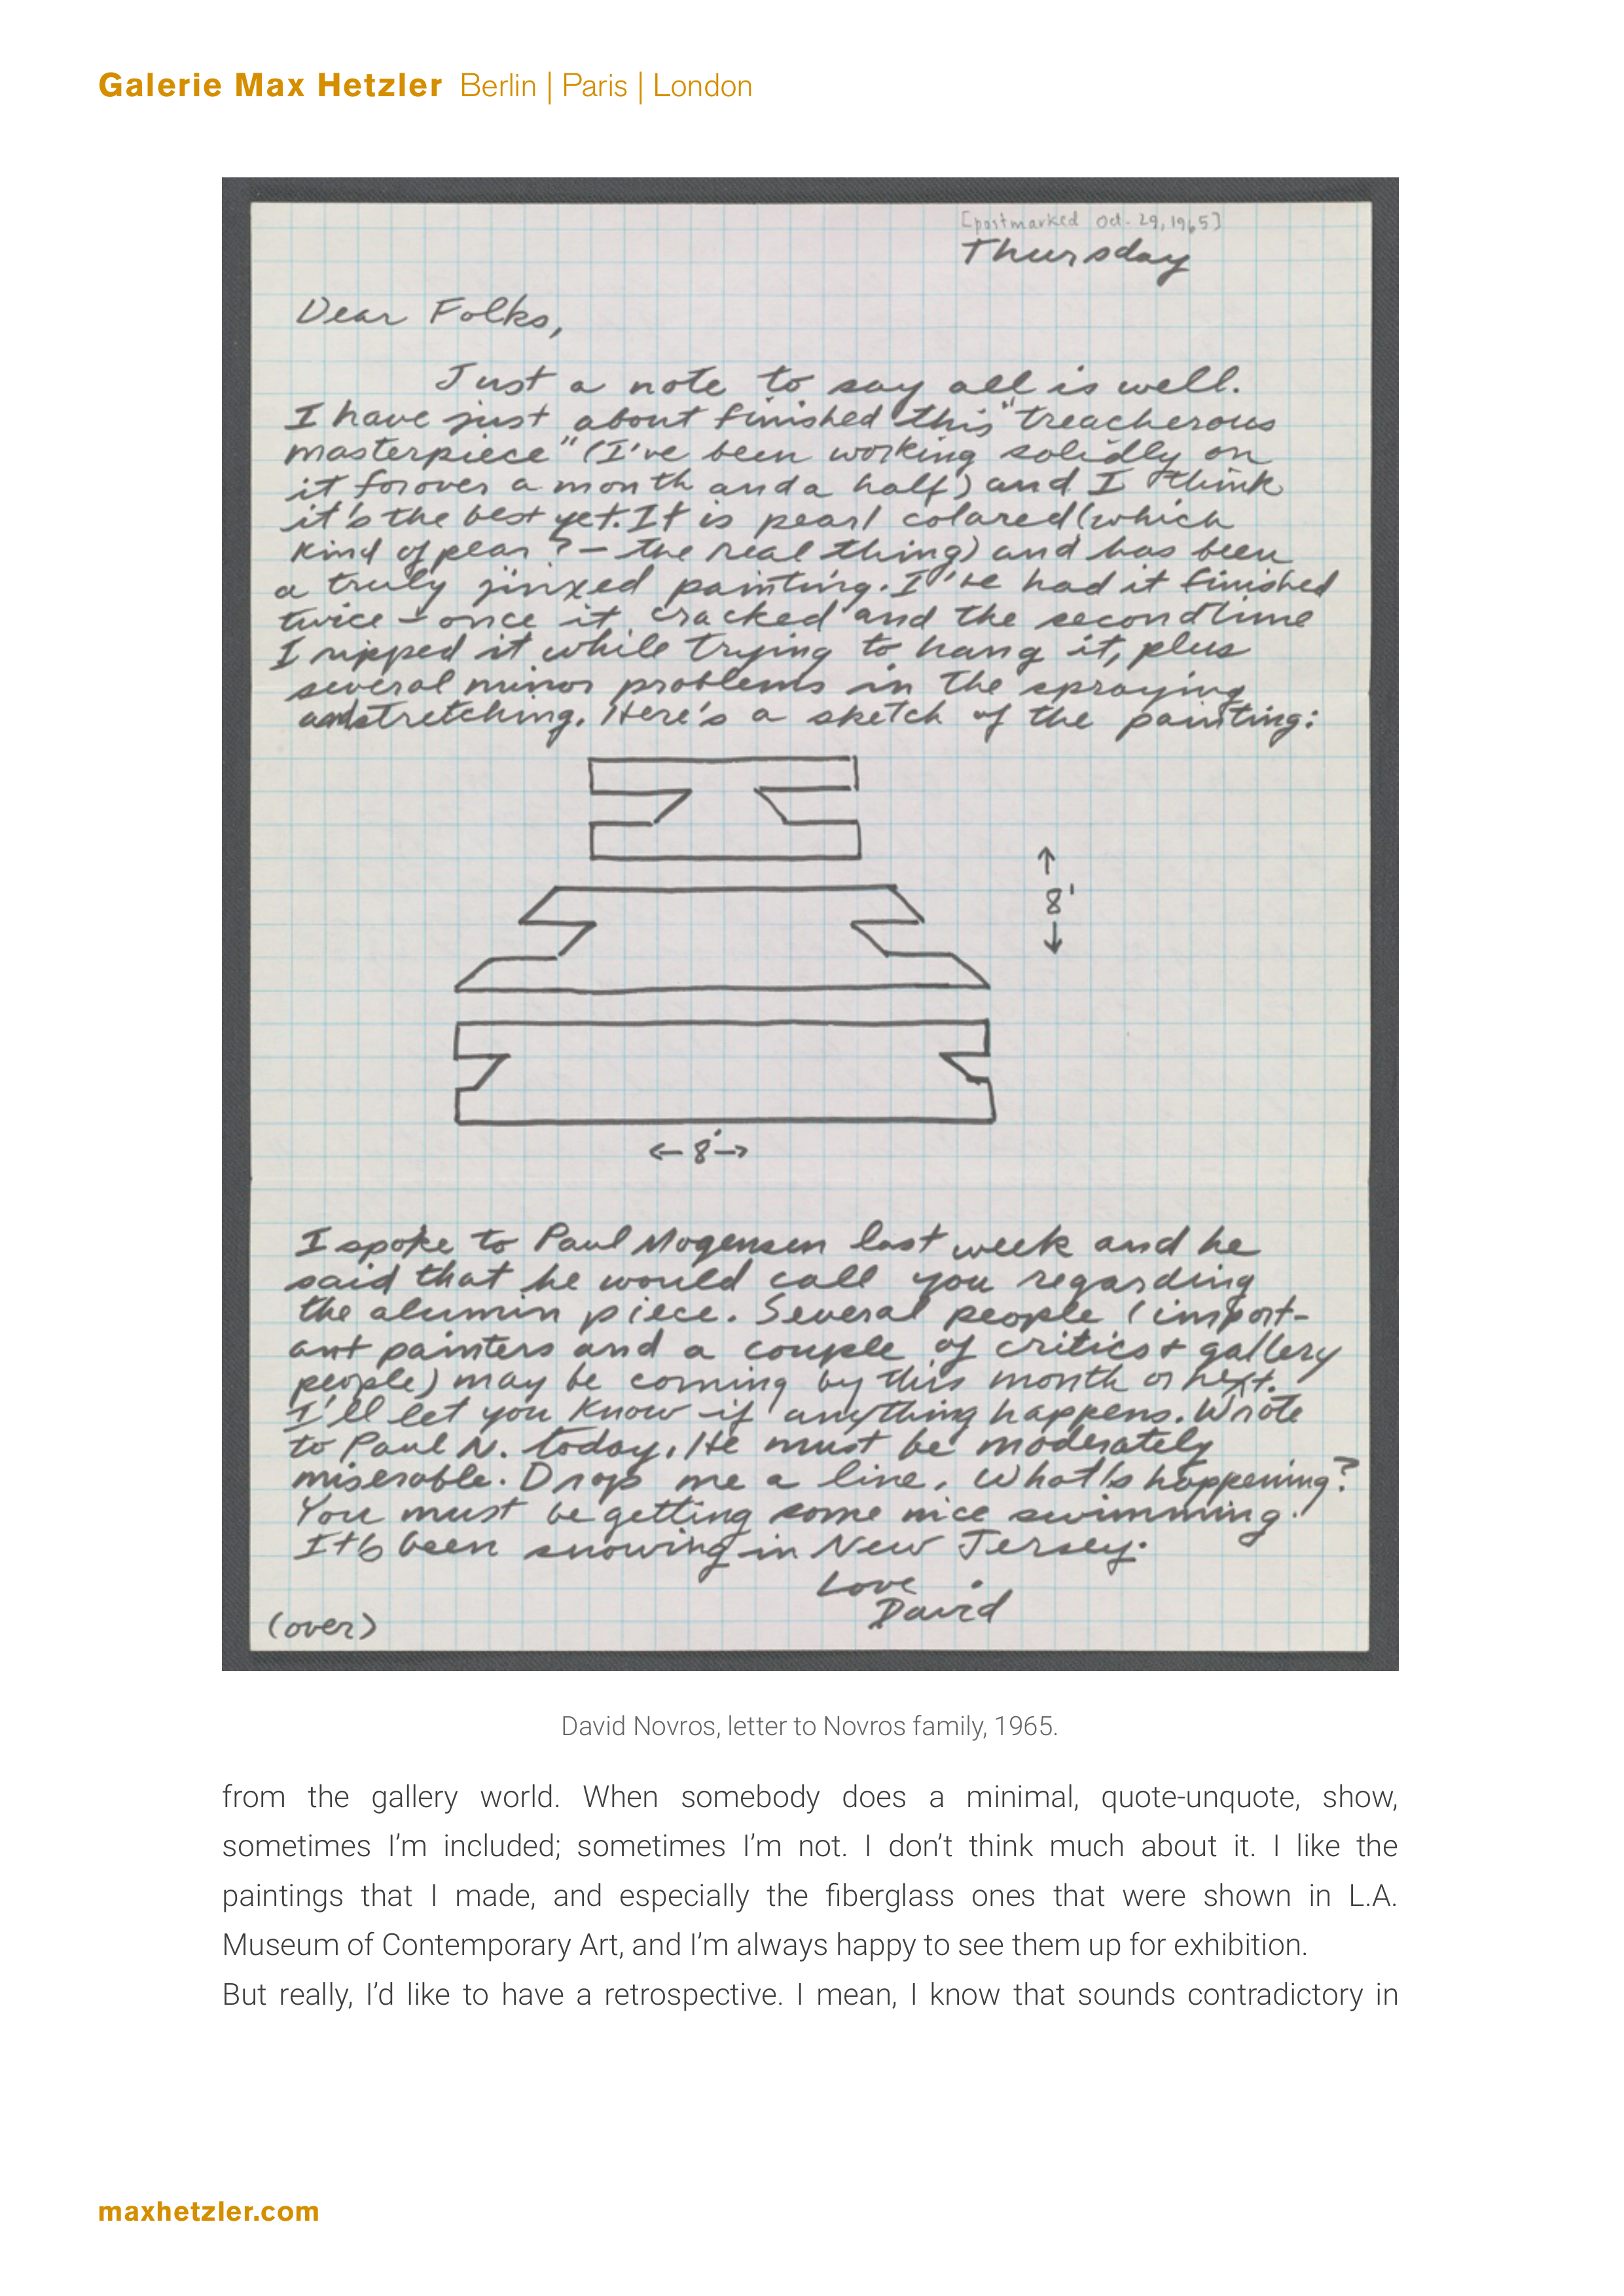 Galerie Max Hetzler Berlin | Paris | London
[postmarked Oct. 29, 1965]
Thursday
Dear Folks,
Just a note to say all is well.
I have just about finished this "treacherous
masterpiece" (I've been working solidly on
it for over a month and a half) and I think
it's the best yet. It is pearl colared (which
kind of pear ? - the real thing) and has been
a truly jinxed painting. I've had it finished
twice - once it cracked and the second time
I ripped it while trying to hang it, plus
several minor problems in the spraying
and stretching. Here's a sketch of the painting:
8'
← 8' →
I spoke to Paul Mogensen last week and he
said that he would call you regarding
the alumin piece. Several people (import-
ant painters and a couple of critics + gallery
people) may be coming by this month or next.
I'll let you know if anything happens. Wrote
to Paul N. today. He must be moderately
miserable. Drop me a line. What's happening?
You must be getting some nice swimming.
It's been snowing in New Jersey.
Love
David
(over)
David Novros, letter to Novros family, 1965.
from the gallery world. When somebody does a minimal, quote-unquote, show,
sometimes I'm included; sometimes I'm not. I don't think much about it. I like the
paintings that I made, and especially the fiberglass ones that were shown in L.A.
Museum of Contemporary Art, and I'm always happy to see them up for exhibition.
But really, I'd like to have a retrospective. I mean, I know that sounds contradictory in
maxhetzler.com